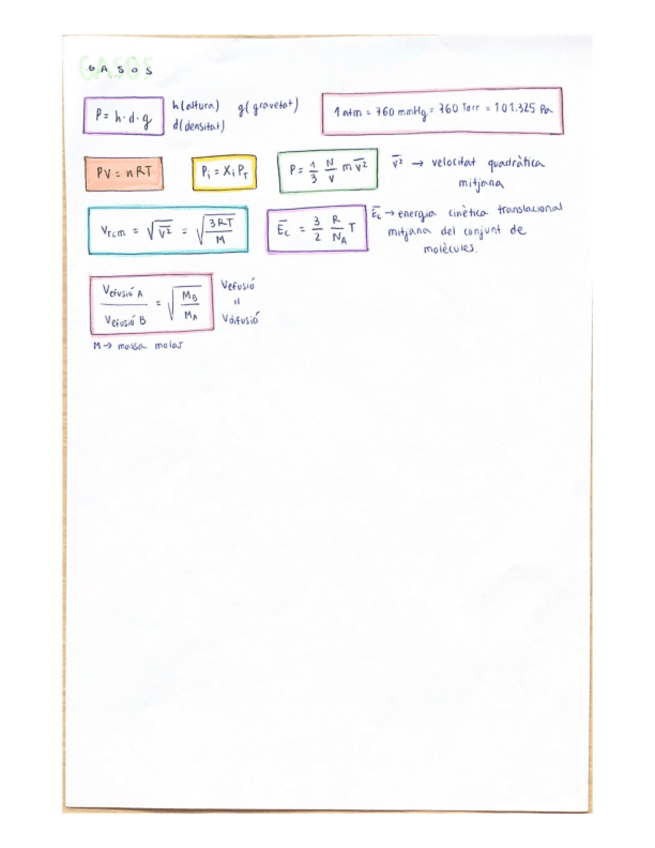 GASOS
P = h·d·g
h(altura) g(gravetat)
d(densitat)
1 atm = 760 mmHg = 760 Torr = 101.325 Pa
PV = nRT
Pᵢ = Xᵢ P_T
P = 1/3 N/V m v̅²
v̅² → velocitat quadràtica
mitjana
v_rcm = √v̅² = √(3RT/M)
E̅c = 3/2 R/N_A T
E̅c → energia cinètica translacional
mitjana del conjunt de
molècules.
Vefusió A / Vefusió B = √(M_B/M_A)
Vefusió
=
Vdifusió
M → massa molar